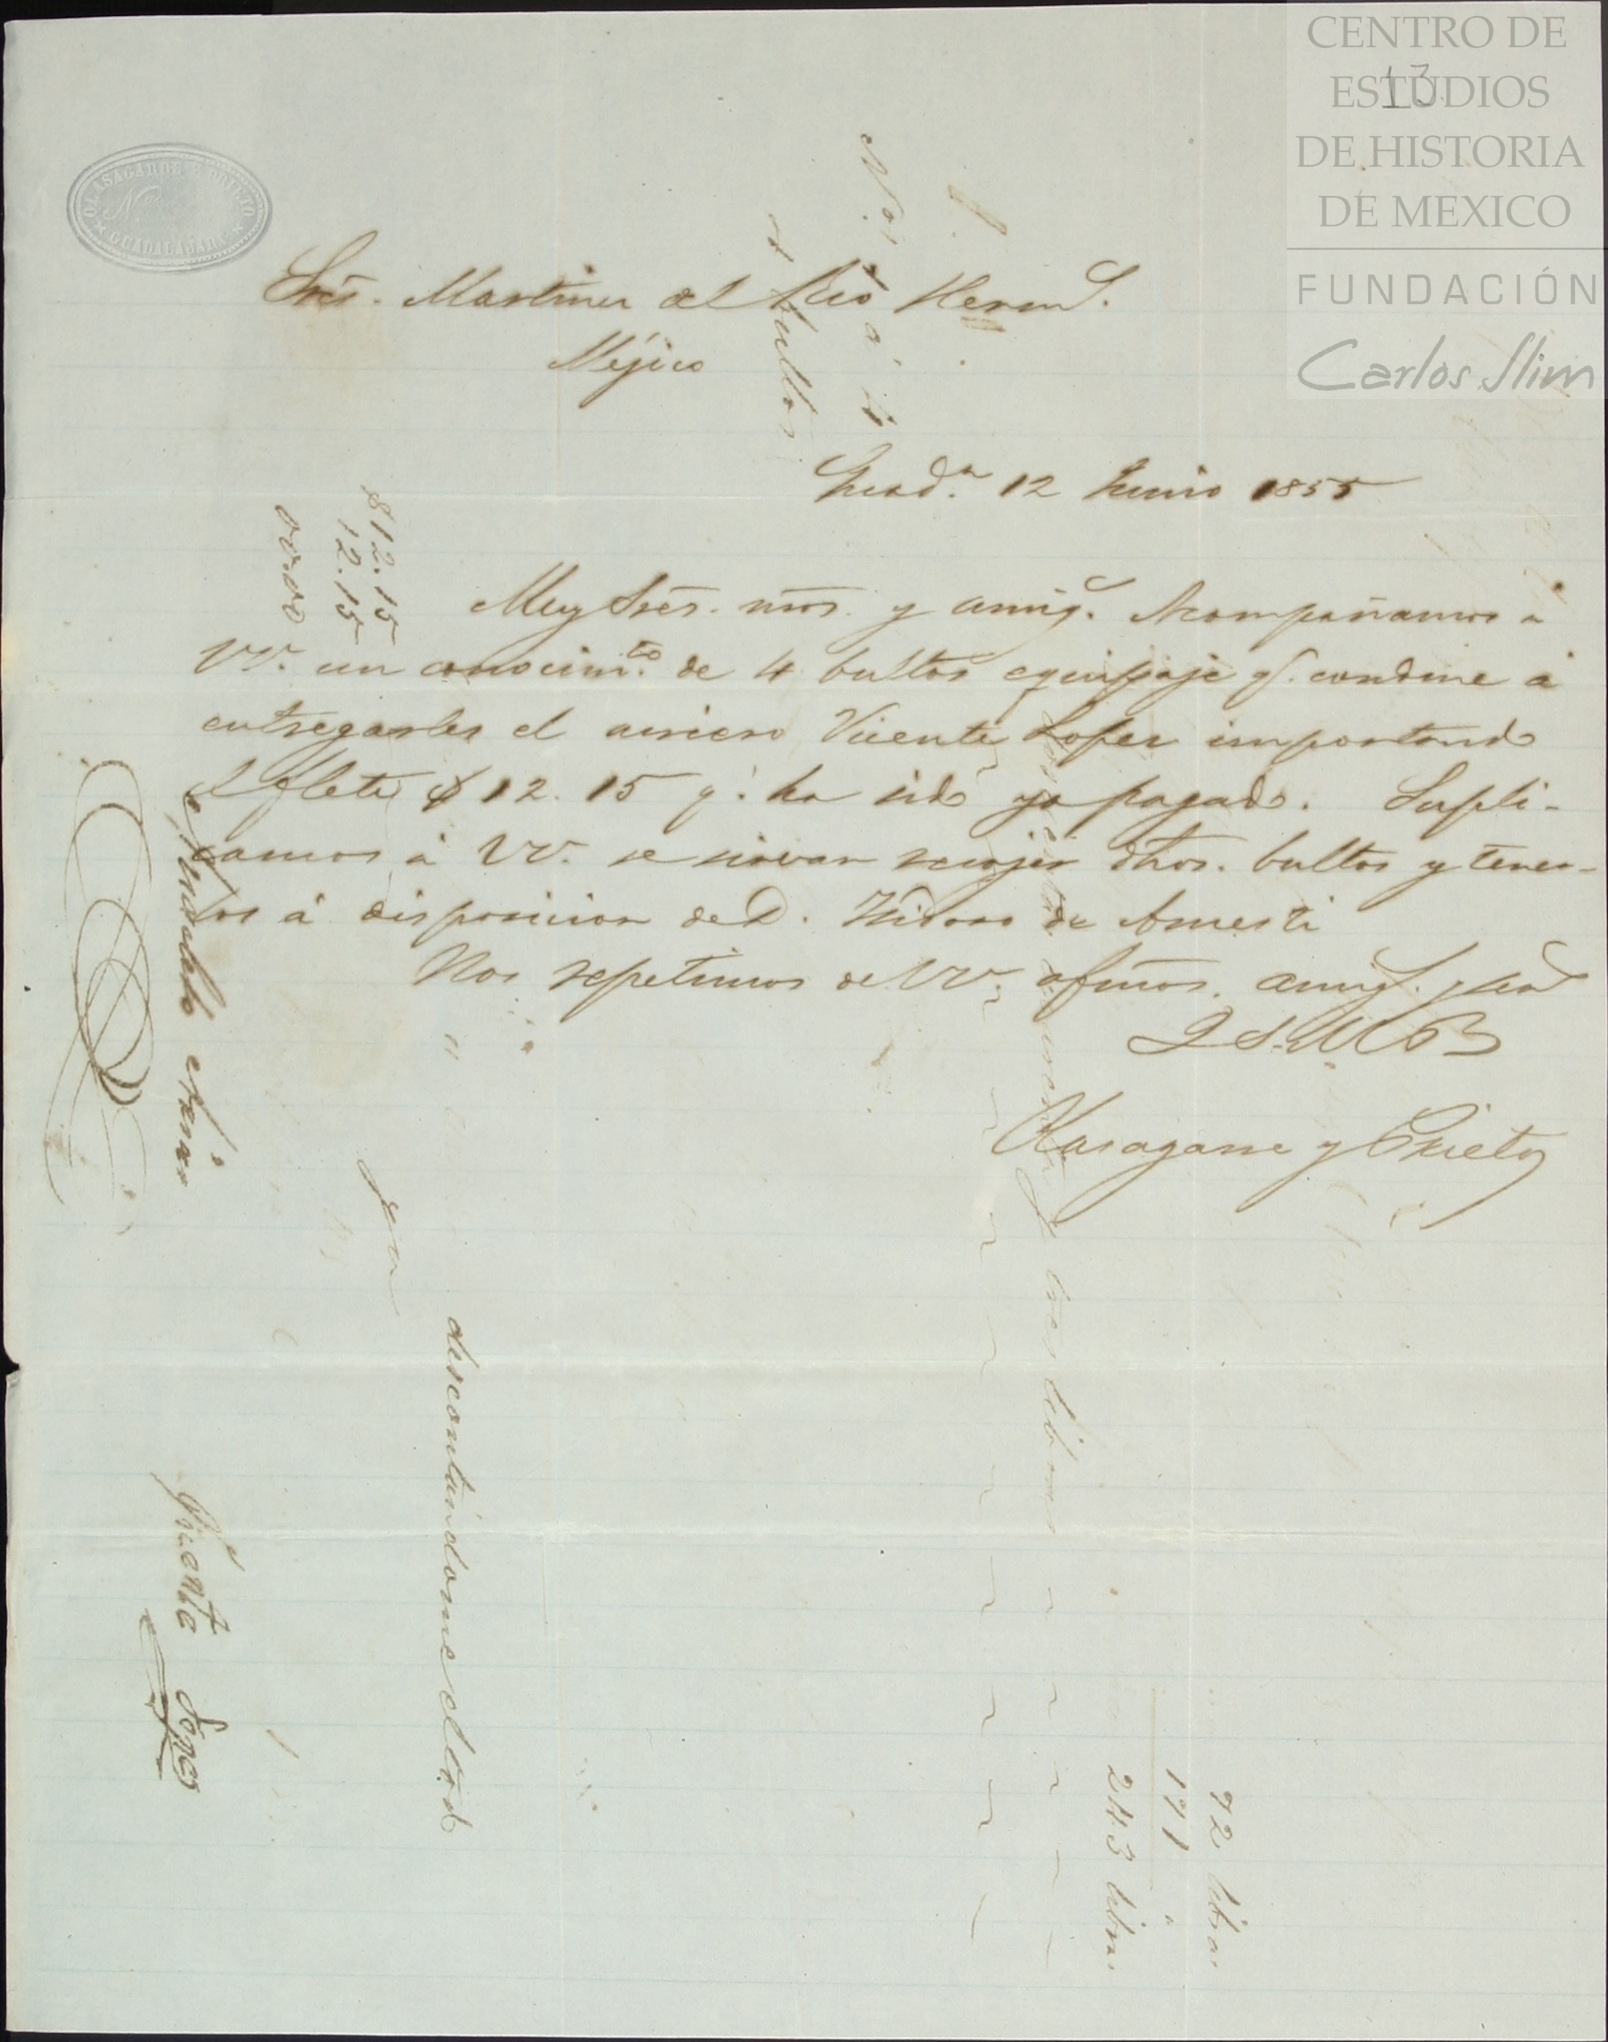 CENTRO DE
ESTUDIOS
DE HISTORIA
DE MEXICO
FUNDACIÓN
Carlos Slim
13
OLASAGARRE Y PRIETO
GUADALAJARA
Sres. Martinez del Rio Herms.
Méjico
Guada. 12 Junio 1855
Muy Sres. nros. y amigs. Acompañamos á
VV. un conocimto. de 4 bultos equipaje q. conduce á
entregarles el arriero Vicente Lopez importando
el flete $12.15 q. ha sido ya pagado. Supli-
camos á VV. se sirvan recojer dhos. bultos y tener-
los á disposicion de D. Ysidoro de Amesti
Nos repetimos de VV. afmos. amigs. y
Q S. M B
Olasagarre y Prieto
Nos. á
4 bultos
$12.15
12.15
00.00
y tres libras
72 libras
171 "
243 libras
descontándome
Vicente Lopes